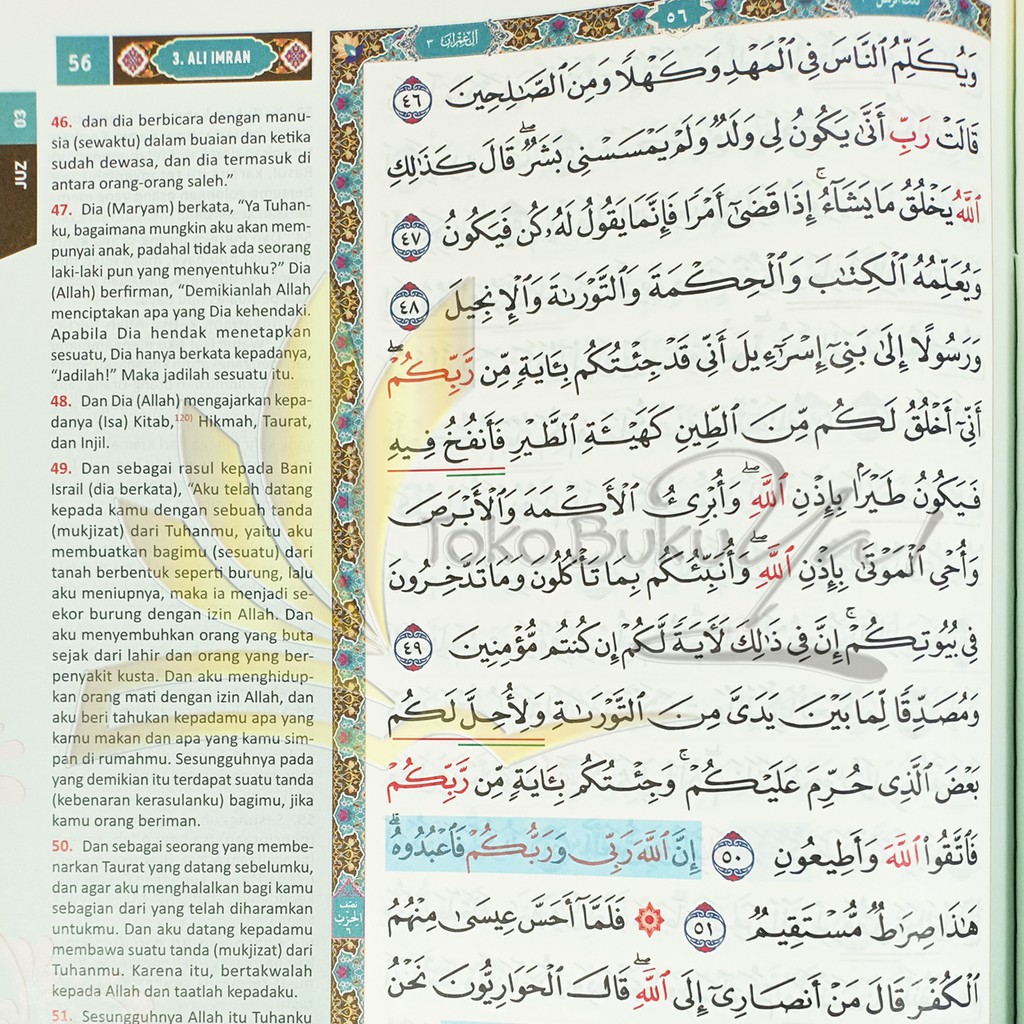 56
3. ALI IMRAN
03
JUZ
46. dan dia berbicara dengan manu-
sia (sewaktu) dalam buaian dan ketika
sudah dewasa, dan dia termasuk di
antara orang-orang saleh.”
47. Dia (Maryam) berkata, “Ya Tuhan-
ku, bagaimana mungkin aku akan mem-
punyai anak, padahal tidak ada seorang
laki-laki pun yang menyentuhku?” Dia
(Allah) berfirman, “Demikianlah Allah
menciptakan apa yang Dia kehendaki.
Apabila Dia hendak menetapkan
sesuatu, Dia hanya berkata kepadanya,
“Jadilah!” Maka jadilah sesuatu itu.
48. Dan Dia (Allah) mengajarkan kepa-
danya (Isa) Kitab,120) Hikmah, Taurat,
dan Injil.
49. Dan sebagai rasul kepada Bani
Israil (dia berkata), “Aku telah datang
kepada kamu dengan sebuah tanda
(mukjizat) dari Tuhanmu, yaitu aku
membuatkan bagimu (sesuatu) dari
tanah berbentuk seperti burung, lalu
aku meniupnya, maka ia menjadi se-
ekor burung dengan izin Allah. Dan
aku menyembuhkan orang yang buta
sejak dari lahir dan orang yang ber-
penyakit kusta. Dan aku menghidup-
kan orang mati dengan izin Allah, dan
aku beri tahukan kepadamu apa yang
kamu makan dan apa yang kamu sim-
pan di rumahmu. Sesungguhnya pada
yang demikian itu terdapat suatu tanda
(kebenaran kerasulanku) bagimu, jika
kamu orang beriman.
50. Dan sebagai seorang yang membe-
narkan Taurat yang datang sebelumku,
dan agar aku menghalalkan bagi kamu
sebagian dari yang telah diharamkan
untukmu. Dan aku datang kepadamu
membawa suatu tanda (mukjizat) dari
Tuhanmu. Karena itu, bertakwalah
kepada Allah dan taatlah kepadaku.
51. Sesungguhnya Allah itu Tuhanku
٥٦
اٰل عمران ٣
وَيُكَلِّمُ ٱلنَّاسَ فِى ٱلْمَهْدِ وَكَهْلًا وَمِنَ ٱلصَّـٰلِحِينَ ٤٦
قَالَتْ رَبِّ أَنَّىٰ يَكُونُ لِى وَلَدٌ وَلَمْ يَمْسَسْنِى بَشَرٌۖ قَالَ كَذَٰلِكِ
ٱللَّهُ يَخْلُقُ مَا يَشَآءُۚ إِذَا قَضَىٰٓ أَمْرًا فَإِنَّمَا يَقُولُ لَهُۥ كُن فَيَكُونُ ٤٧
وَيُعَلِّمُهُ ٱلْكِتَـٰبَ وَٱلْحِكْمَةَ وَٱلتَّوْرَىٰةَ وَٱلْإِنجِيلَ ٤٨
وَرَسُولًا إِلَىٰ بَنِىٓ إِسْرَٰٓءِيلَ أَنِّى قَدْ جِئْتُكُم بِـَٔايَةٍ مِّن رَّبِّكُمْۖ
أَنِّىٓ أَخْلُقُ لَكُم مِّنَ ٱلطِّينِ كَهَيْـَٔةِ ٱلطَّيْرِ فَأَنفُخُ فِيهِ
فَيَكُونُ طَيْرًۢا بِإِذْنِ ٱللَّهِۖ وَأُبْرِئُ ٱلْأَكْمَهَ وَٱلْأَبْرَصَ
وَأُحْىِ ٱلْمَوْتَىٰ بِإِذْنِ ٱللَّهِۖ وَأُنَبِّئُكُم بِمَا تَأْكُلُونَ وَمَا تَدَّخِرُونَ
فِى بُيُوتِكُمْۚ إِنَّ فِى ذَٰلِكَ لَـَٔايَةً لَّكُمْ إِن كُنتُم مُّؤْمِنِينَ ٤٩
وَمُصَدِّقًا لِّمَا بَيْنَ يَدَىَّ مِنَ ٱلتَّوْرَىٰةِ وَلِأُحِلَّ لَكُم
بَعْضَ ٱلَّذِى حُرِّمَ عَلَيْكُمْۚ وَجِئْتُكُم بِـَٔايَةٍ مِّن رَّبِّكُمْ
فَٱتَّقُوا۟ ٱللَّهَ وَأَطِيعُونِ ٥٠ إِنَّ ٱللَّهَ رَبِّى وَرَبُّكُمْ فَٱعْبُدُوهُۗ
هَـٰذَا صِرَٰطٌ مُّسْتَقِيمٌ ٥١ ۞ فَلَمَّآ أَحَسَّ عِيسَىٰ مِنْهُمُ
ٱلْكُفْرَ قَالَ مَنْ أَنصَارِىٓ إِلَى ٱللَّهِۖ قَالَ ٱلْحَوَارِيُّونَ نَحْنُ
نصف
الحزب
٦
Toko Buku